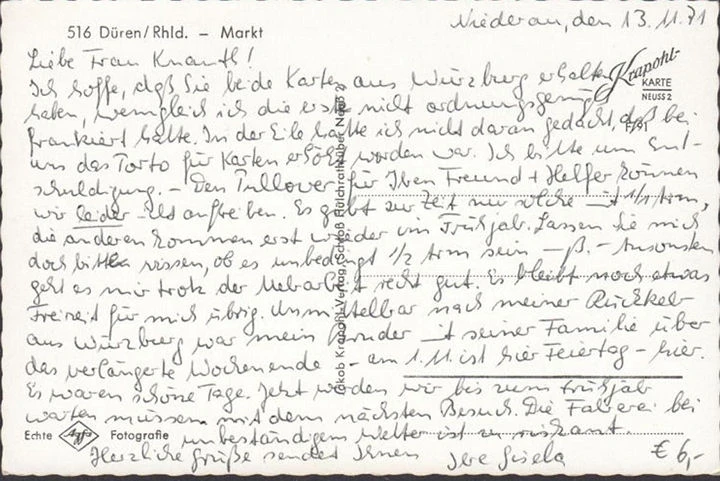 516 Düren/Rhld. – Markt
Niederau, den 13.11.71
Liebe Frau Knauth!
Ich hoffe, daß Sie beide Karten aus Würzburg erhalten
haben, wenngleich ich die erste nicht ordnungsgemäß
frankiert hatte. In der Eile hatte ich nicht daran gedacht, daß bei
uns das Porto für Karten erhöht worden war. Ich bitte um Ent-
schuldigung. – Den Pullover für Ihren Freund + Helfer können
wir leider nicht auftreiben. Es gibt zur Zeit nur solche mit 1/1 Arm,
die anderen kommen erst wieder im Frühjahr. Lassen Sie mich
doch bitte wissen, ob es unbedingt 1/2 Arm sein muß. – Ansonsten
geht es mir trotz der Mehrarbeit recht gut. Es bleibt noch etwas
Freizeit für mich übrig. Unmittelbar nach meiner Rückkehr
aus Würzburg war mein Bruder mit seiner Familie über
das verlängerte Wochenende – am 1.11. ist hier Feiertag – hier.
Es waren schöne Tage. Jetzt werden wir bis zum Frühjahr
warten müssen mit dem nächsten Besuch. Die Fahrerei bei
unbeständigem Wetter ist zu riskant.
Herzliche Grüße sendet Ihnen
Ihre Gisela
€ 6,-
Krapohl-
KARTE
NEUSS 2
F/91
Jakob Krapohl-Verlag, Schloß Hülchrath über Neuß 2
Echte Agfa Fotografie